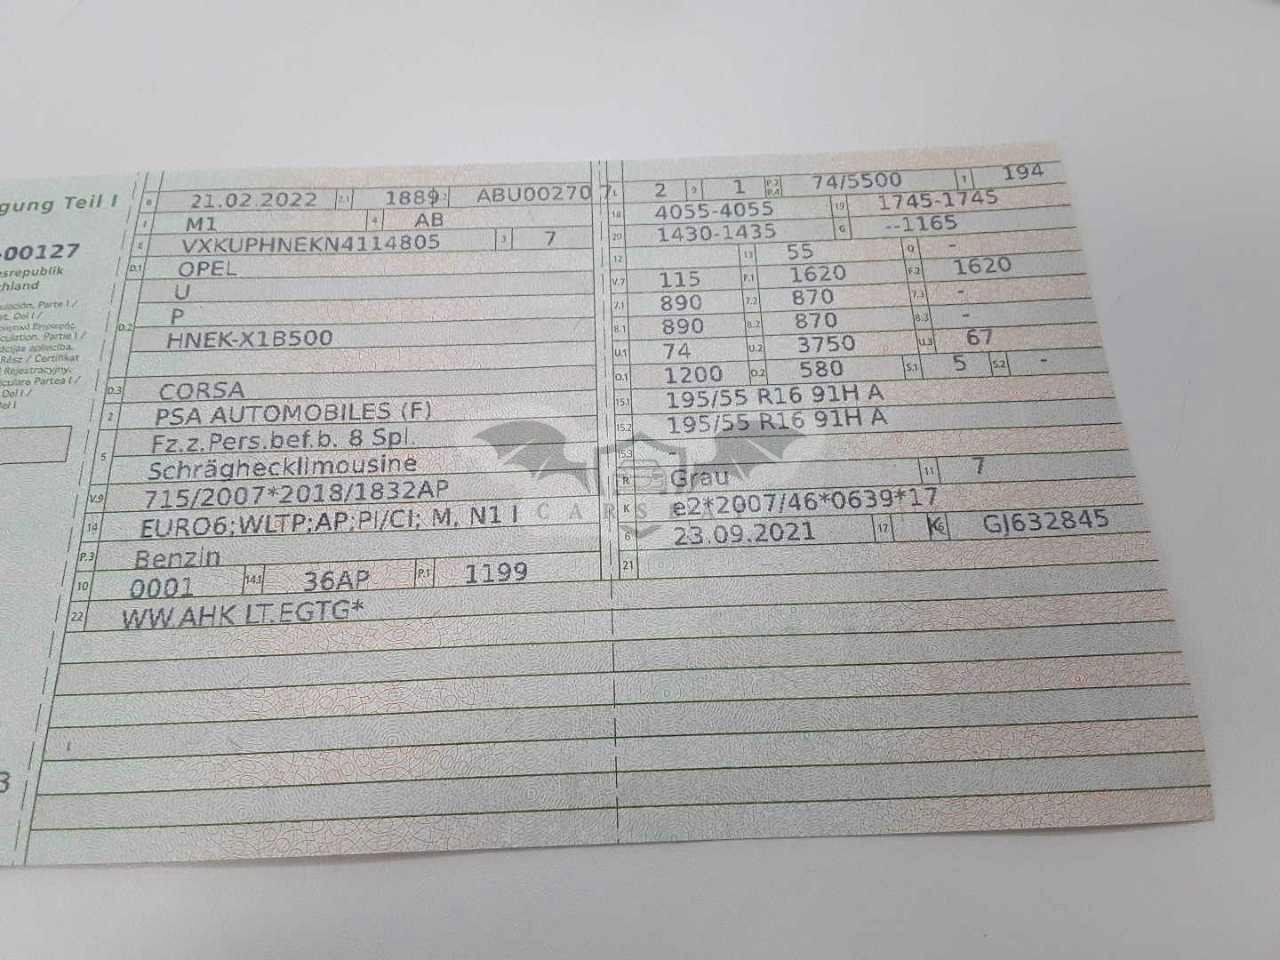 gung Teil I
-00127
esrepublik
chland
B 21.02.2022 2.1 1889 ABU00270 7
J M1 4 AB
E VXKUPHNEKN4114805 3 7
D.1 OPEL
U
D.2 P
HNEK-X1B500
D.3 CORSA
2 PSA AUTOMOBILES (F)
5 Fz.z.Pers.bef.b. 8 Spl.
Schräghecklimousine
V.9 715/2007*2018/1832AP
14 EURO6;WLTP;AP;PI/CI; M, N1 I
P.3 Benzin
10 0001 14.1 36AP P.1 1199
22 WW.AHK LT.EGTG*
L 2 9 1 P.2 P.4 74/5500 T 194
18 4055-4055 19 1745-1745
20 1430-1435 G --1165
12 13 55 Q -
V.7 115 F.1 1620 F.2 1620
7.1 890 7.2 870 7.3 -
8.1 890 8.2 870 8.3 -
U.1 74 U.2 3750 U.3 67
O.1 1200 O.2 580 S.1 5 S.2 -
15.1 195/55 R16 91H A
15.2 195/55 R16 91H A
15.3 -
R Grau 11 7
K e2*2007/46*0639*17
6 23.09.2021 17 K 16 GJ632845
21
CARS
3